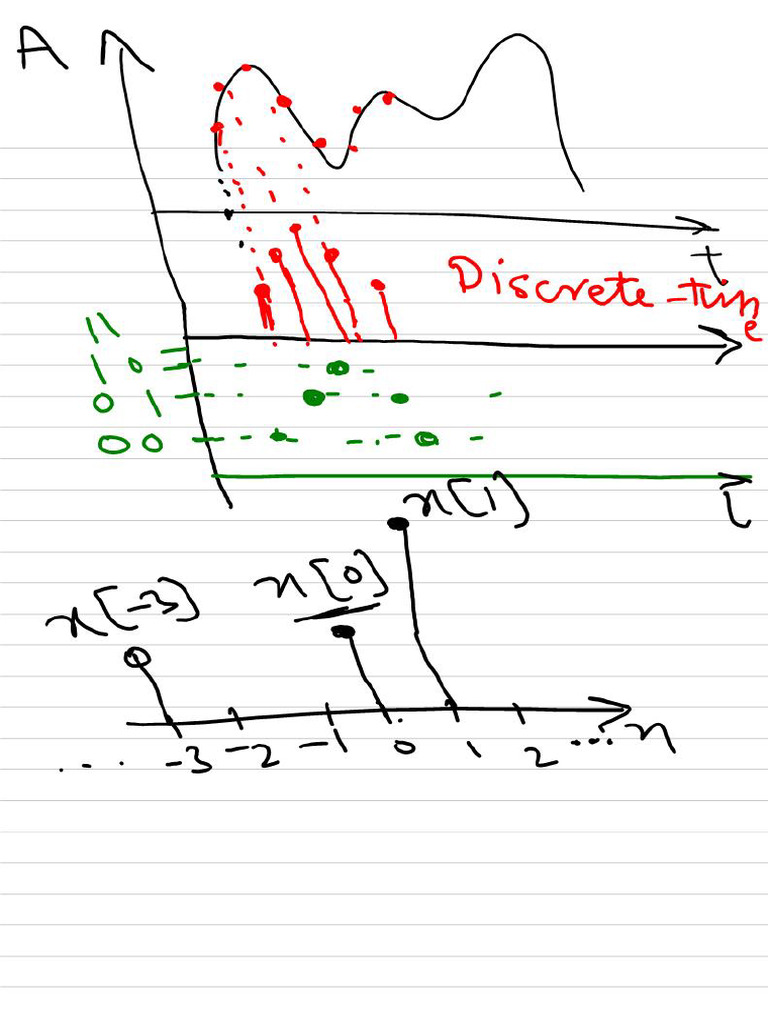 A
t
Discrete-time
11
10
01
00
t
x[1]
x[0]
x[-3]
... -3 -2 -1 0 1 2 ... n